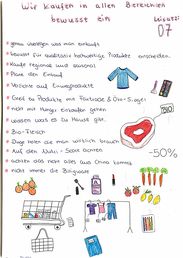 Wir kaufen in allen Bereichen
bewusst ein
Leitsatz:
07
genau überlegen was man einkauft
bewusst für qualitativ hochwertige Produkte entscheiden
Kaufe regional und saisonal
Plane den Einkauf
Verzicht auf Einwegprodukte
Greif zu Produkte mit Fairtrade & Öko-Siegel
nicht mit Hunger einkaufen gehen
wissen was es zu Hause gibt
Bio-Fleisch
Dinge holen die man wirklich brauch
Auf den Nutri-Score achten
achten das nicht alles aus China kommt
nicht immer die Billigware
BIO
-50%